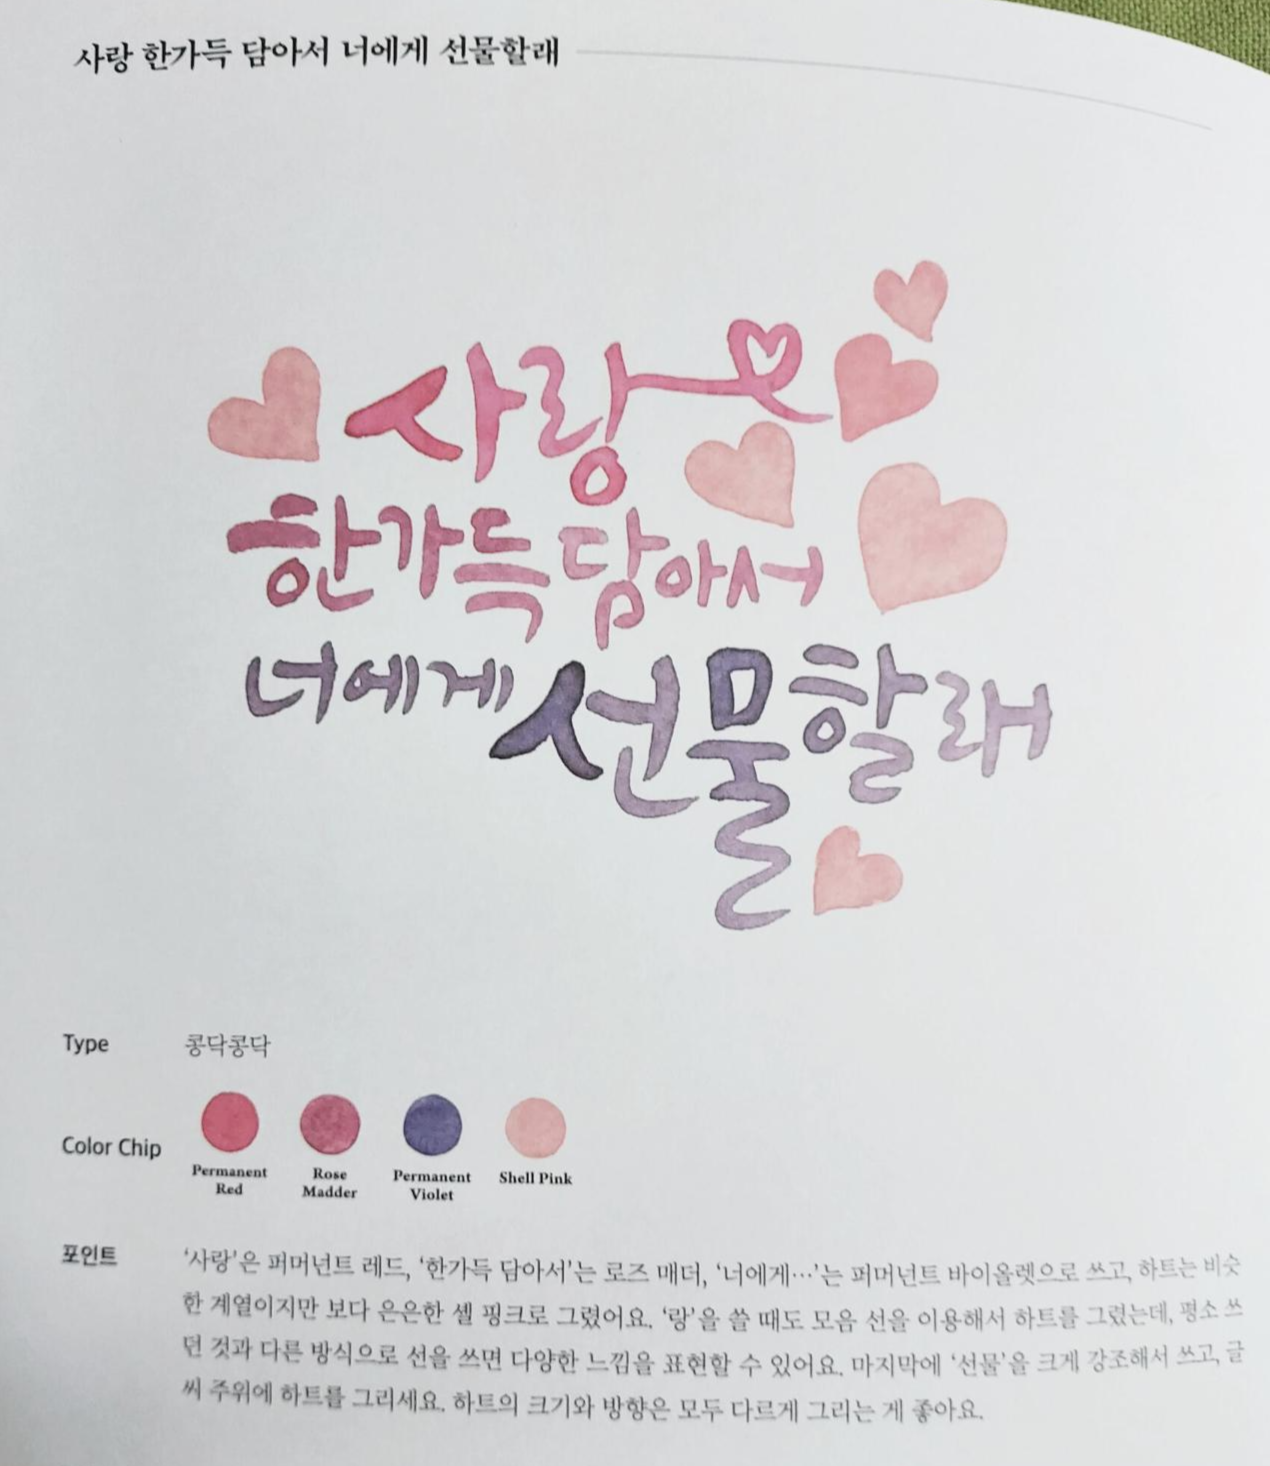 사랑 한가득 담아서 너에게 선물할래
사랑
한가득 담아서
너에게 선물할래
Type 콩닥콩닥
Color Chip
Permanent Red
Rose Madder
Permanent Violet
Shell Pink
포인트 ‘사랑’은 퍼머넌트 레드, ‘한가득 담아서’는 로즈 매더, ‘너에게…’는 퍼머넌트 바이올렛으로 쓰고, 하트는 비슷
한 계열이지만 보다 은은한 셸 핑크로 그렸어요. ‘랑’을 쓸 때도 모음 선을 이용해서 하트를 그렸는데, 평소 쓰
던 것과 다른 방식으로 선을 쓰면 다양한 느낌을 표현할 수 있어요. 마지막에 ‘선물’을 크게 강조해서 쓰고, 글
씨 주위에 하트를 그리세요. 하트의 크기와 방향은 모두 다르게 그리는 게 좋아요.